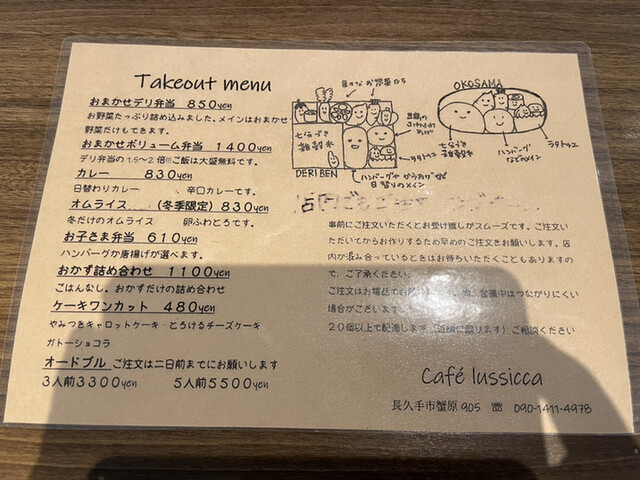 Takeout menu
おまかせデリ弁当 850yen
お野菜たっぷり詰め込みました。メインはおまかせ
野菜だけもできます。
おまかせボリューム弁当 1400yen
デリ弁当の1.5~2倍!!ご飯は大盛無料です。
カレー 830yen
日替わりカレー 、辛口カレーです。
オムライス (冬季限定) 830yen
冬だけのオムライス 卵ふわとろです。
お子さま弁当 610yen
ハンバーグか唐揚げが選べます。
おかず詰め合わせ 1100yen
ごはんなし。おかずだけの詰め合わせ
ケーキワンカット 480yen
やみつきキャロットケーキ・とろけるチーズケーキ
ガトーショコラ
オードブル ご注文は二日前までにお願いします
3人前3300yen 5人前5500yen
色々なお惣菜たち
七分づき
雑穀米
DERI BEN
ラタトゥユ
ハンバーグや からあげなど
日替りのメイン
OKOSAMA
七分づき
雑穀米
ハンバーグ
などのメイン
ラタトゥユ
事前にご注文いただくとお受け渡しがスムーズです。ご注文い
ただいてからお作りするため早めのご注文をお願いします。店
内が混み合っているときはお待ちいただくこともありますの
で、ご了承ください。
ご注文はお電話で 営業中はつながりにくい
場合がございます。
20個以上で配達します(近隣に限ります)ご相談ください
Café lussicca
長久手市蟹原905 ☏ 090-1411-4978